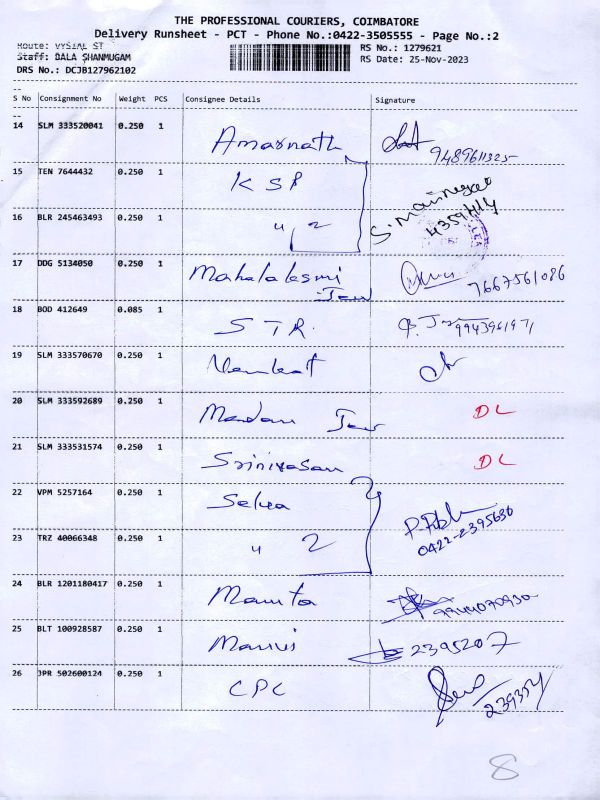 THE PROFESSIONAL COURIERS, COIMBATORE
Delivery Runsheet - PCT - Phone No.:0422-3505555 - Page No.:2
Route: VYSIAL ST
RS No.: 1279621
Staff: BALA SHANMUGAM
RS Date: 25-Nov-2023
DRS No.: DCJB127962102
S No Consignment No Weight PCS Consignee Details Signature
14 SLM 333520041 0.250 1 Amarnath 9489611325
15 TEN 7644432 0.250 1 KSP
16 BLR 245463493 0.250 1 " 2 4359414
17 DDG 5134050 0.250 1 Mahalaksmi 7667561086
18 BOD 412649 0.085 1 STR. 9943961971
19 SLM 333570670 0.250 1 Venkat
20 SLM 333592689 0.250 1 Madan DL
21 SLM 333531574 0.250 1 Srinivasan DL
22 VPM 5257164 0.250 1 Selva
23 TRZ 40066348 0.250 1 " 2 0422-2395636
24 BLR 1201180417 0.250 1 Mamta 9944070930
25 BLT 100928587 0.250 1 2395207
26 JPR 502600124 0.250 1 CPC
8